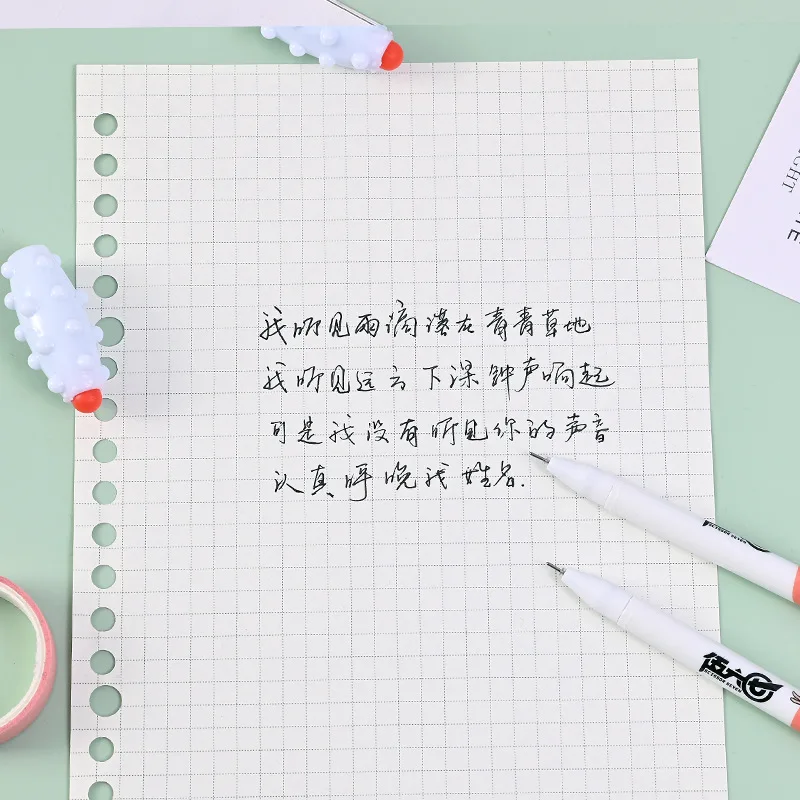 我听见雨滴落在青青草地
我听见远方下课钟声响起
可是我没有听见你的声音
认真呼唤我姓名.
伍六七
SCISSOR SEVEN